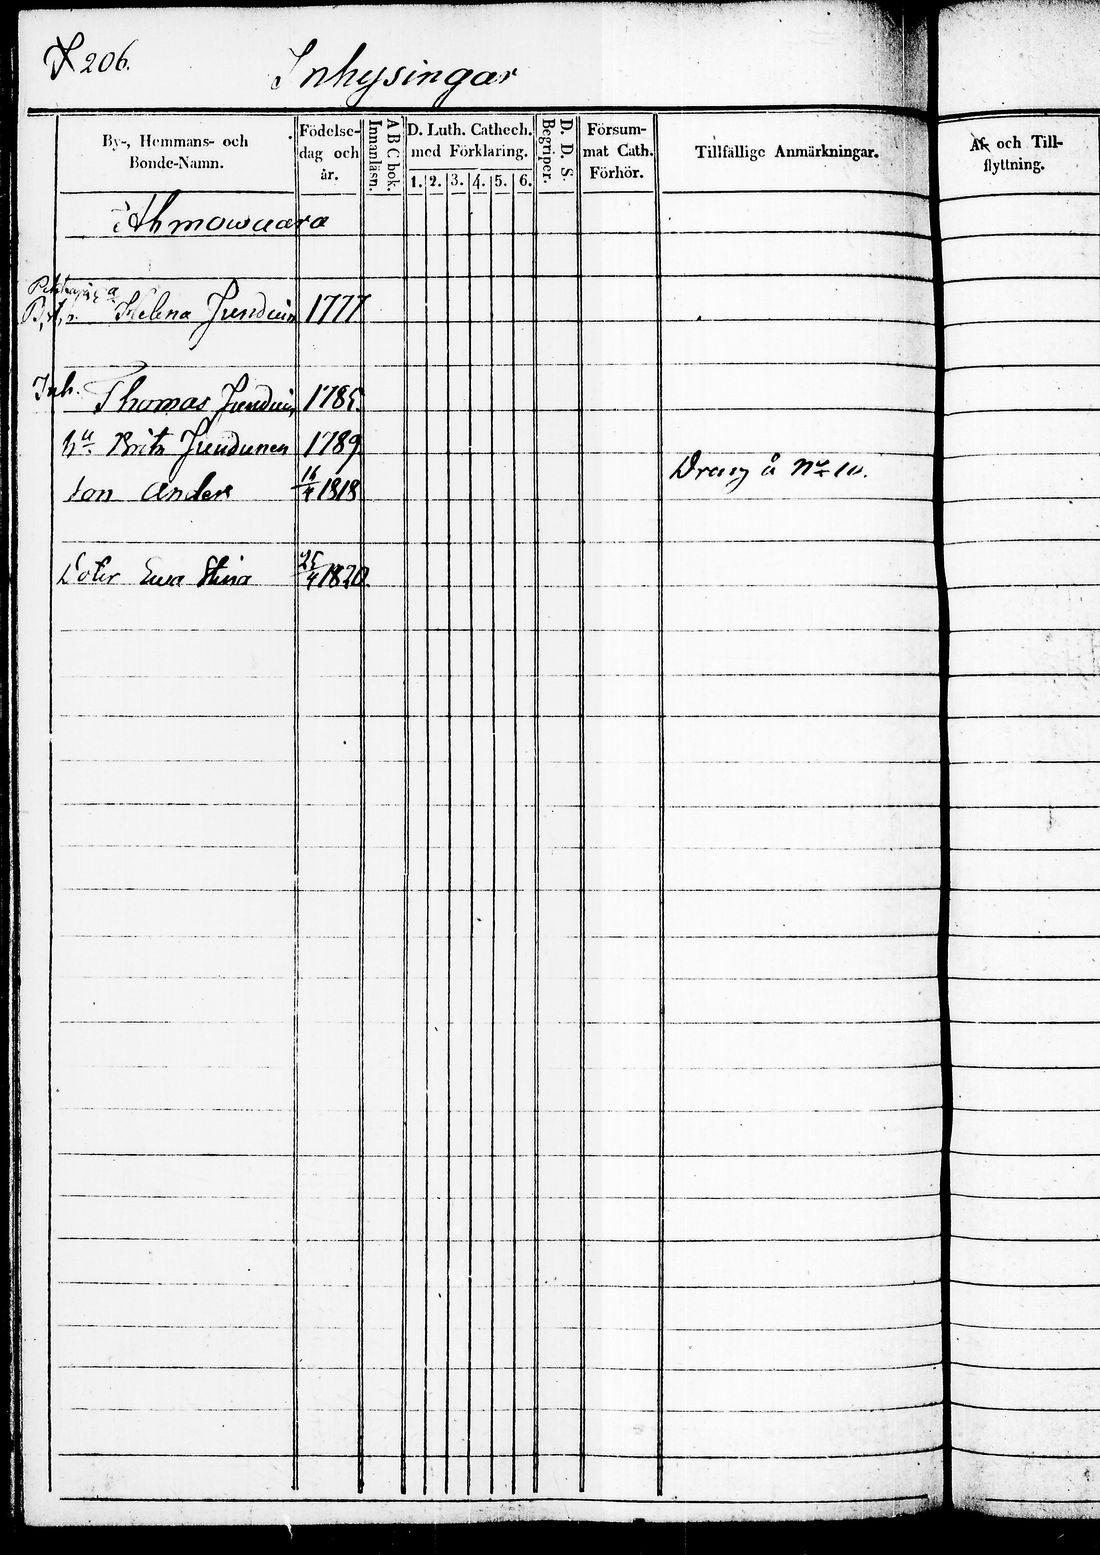 206.
Inhysingar
By-, Hemmans- och Bonde-Namn.
Födelse-dag och år.
Innanläsn.
A B C bok.
D. Luth. Cathech. med Förklaring.
1. 2. 3. 4. 5. 6.
Begriper.
D. D. S.
Försum-mat Cath. Förhör.
Tillfällige Anmärkningar.
Af och Till-flyttning.
i Ahmowaara
Helena 1777
Inh. Thomas 1785.
hu Brita 1789
Son Anders 16/4 1818 Dreng å No 10.
Doter Ewa Stina 25/4 1820